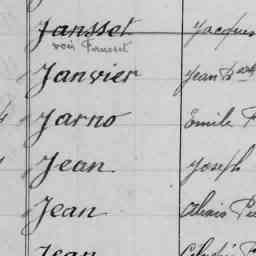 Jansset Jacques
voir Fansset
Janvier Jean Bte
Jarno Emile F
Jean Joseph
Jean Alexis
Jean